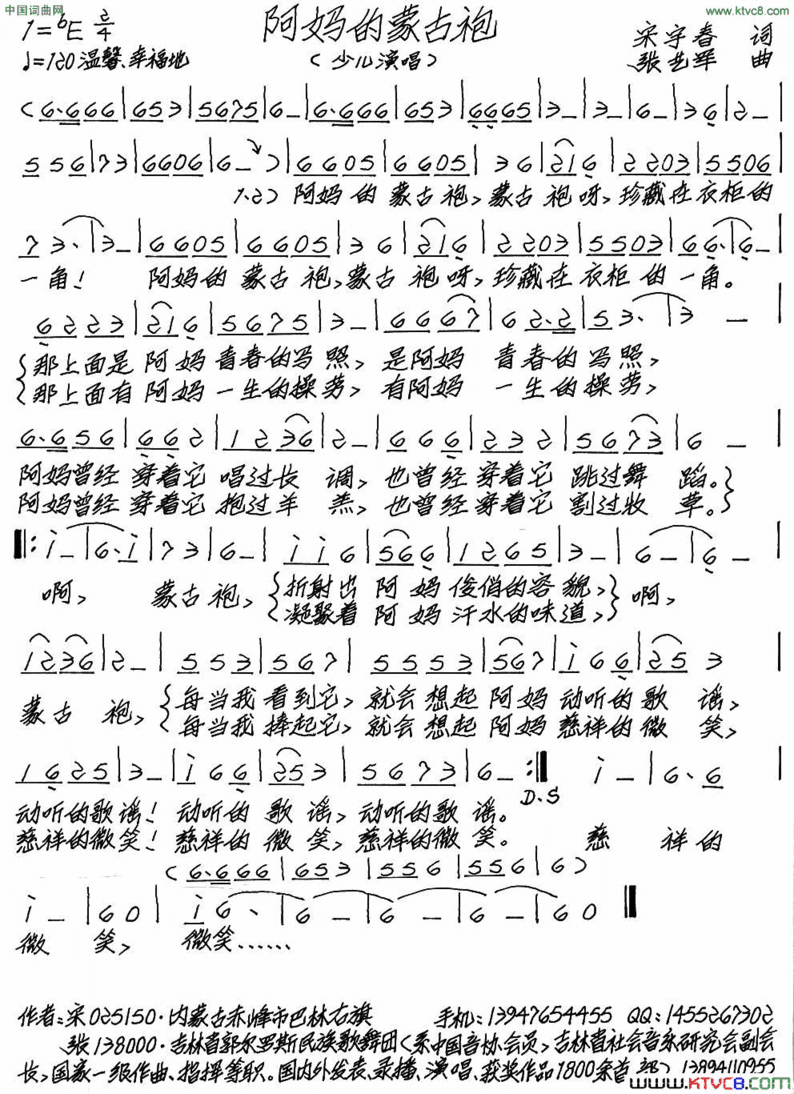 中国词曲网
www.ktvc8.com
阿妈的蒙古袍
1=♭E 2/4
♩=120 温馨、幸福地
（少儿演唱）
宋宇春 词
张艺军 曲
(6·666|653|5675|6－|6·666|653|6665|3－|3－|6－|36|2－|
556|73|6606|6－)|6605|6605|36|216|2203|5506|
1.2）阿妈的蒙古袍，蒙古袍呀，珍藏在衣柜的
73·|3－|6605|6605|36|216|2203|5503|66·|6－|
一角！ 阿妈的蒙古袍，蒙古袍呀，珍藏在衣柜的一角。
6223|216|5675|3－|6667|62·2|53·|3－|
那上面是阿妈青春的写照，是阿妈 青春的写照，
那上面有阿妈一生的操劳，有阿妈 一生的操劳，
6·656|662|1236|2－|666|232|5673|6－|
阿妈曾经穿着它唱过长调，也曾经穿着它跳过舞蹈。
阿妈曾经穿着它抱过羊羔，也曾经穿着它割过牧草。
‖:i－|6·i|73|6－|ii6|566|1265|3－|6－|6－|
啊， 蒙古袍，折射出阿妈俊俏的容貌，啊，
凝聚着阿妈汗水的味道，
1236|2－|553|567|5553|567|i66|253|
蒙古袍，每当我看到它，就会想起阿妈动听的歌谣，
每当我捧起它，就会想起阿妈慈祥的微笑，
1625|3－|i66|253|5673|6－:‖ i－|6·6|
D.S
动听的歌谣！动听的歌谣，动听的歌谣。
慈祥的微笑！慈祥的微笑，慈祥的微笑。 慈祥的
(6·666|653|556|556|6)
i－|60|i6·|6－|6－|6－|60‖
微笑， 微笑……
作者：宋025150·内蒙古赤峰市巴林右旗 手机：13947654455 QQ：1455267302
张138000·吉林省郭尔罗斯民族歌舞团（系中国音协会员，吉林省社会音乐研究会副会
长，国家一级作曲、指挥等职。国内外发表、录播、演唱、获奖作品1800余首 部）13894110955
www.KTVC8.com